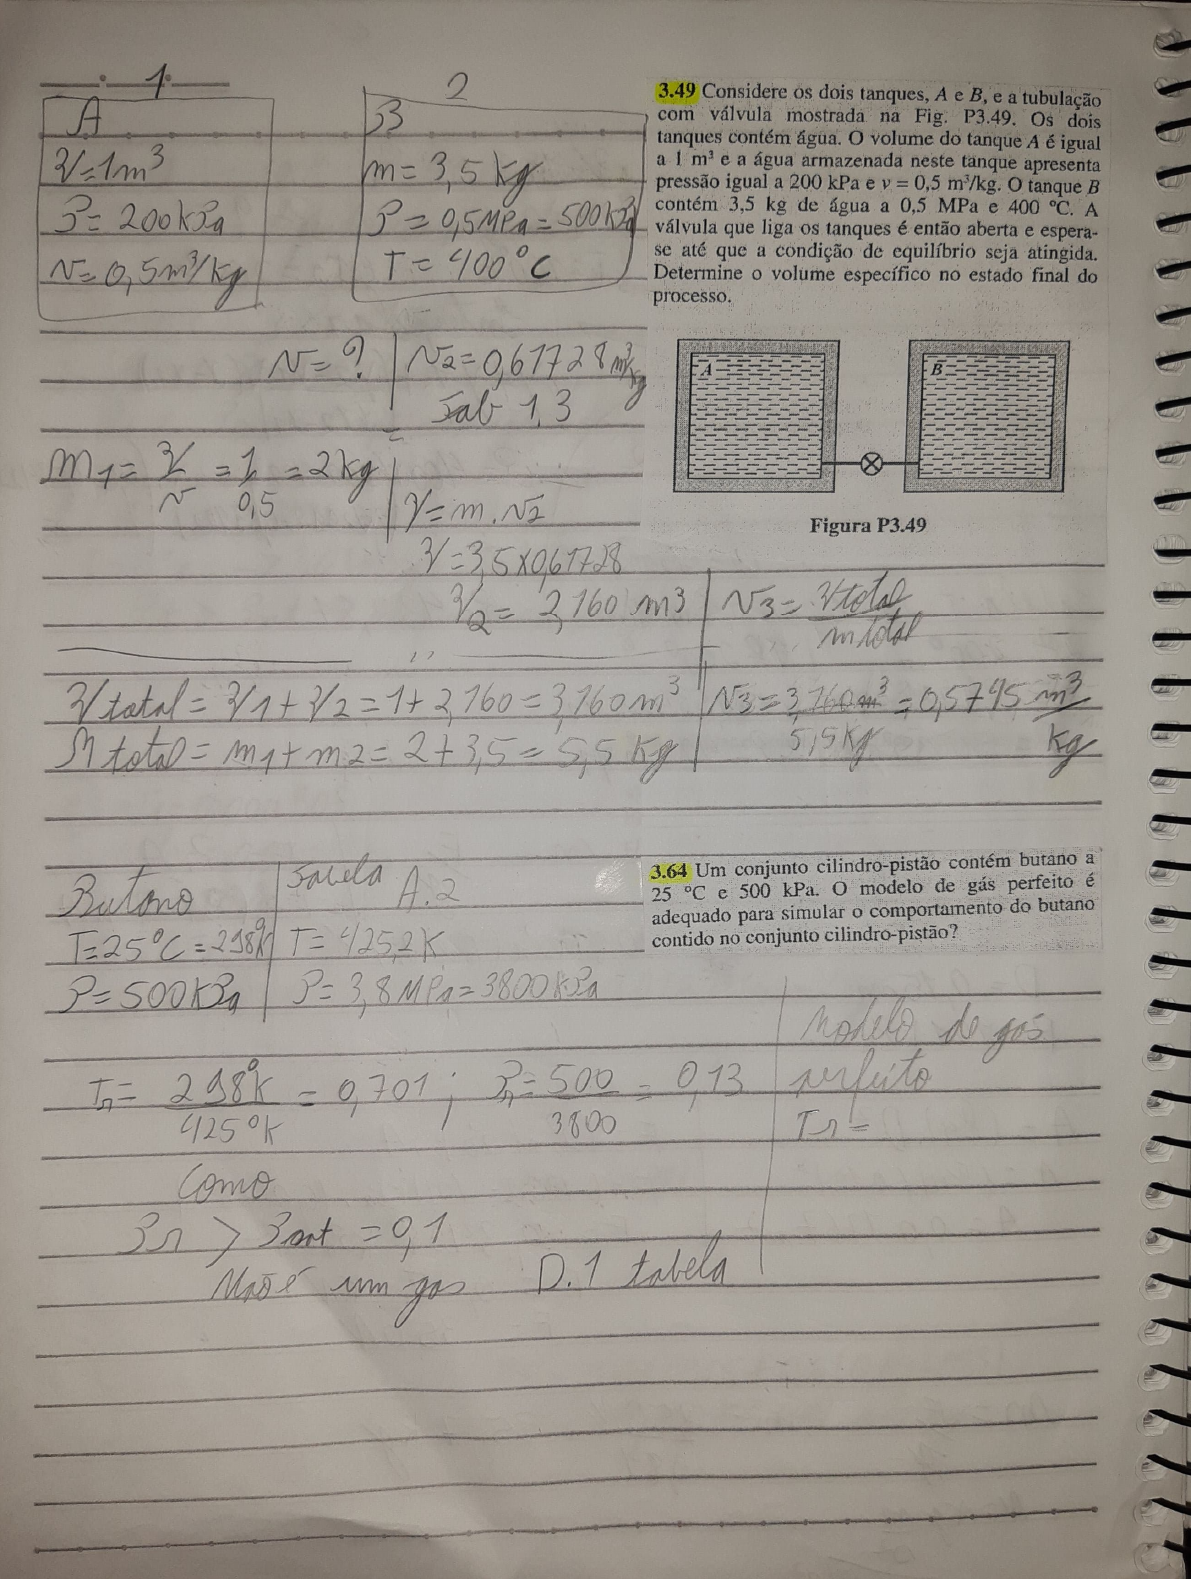 1
2
A
V=1m³
P=200kPa
v=0,5m³/kg
B
m=3,5kg
P=0,5MPa=500kPa
T=400°C
3.49 Considere os dois tanques, A e B, e a tubulação
com válvula mostrada na Fig. P3.49. Os dois
tanques contém água. O volume do tanque A é igual
a 1 m³ e a água armazenada neste tanque apresenta
pressão igual a 200 kPa e v = 0,5 m³/kg. O tanque B
contém 3,5 kg de água a 0,5 MPa e 400 ºC. A
válvula que liga os tanques é então aberta e espera-
se até que a condição de equilíbrio seja atingida.
Determine o volume específico no estado final do
processo.
v=? | v2=0,61728m³/kg
Tab 1,3
m1=V/v=1/0,5=2kg
V=m.v2
V=3,5x0,61728
V2=2,160m³
v3=Vtotal/mtotal
A
B
Figura P3.49
Vtotal=V1+V2=1+2,160=3,160m³
Mtotal=m1+m2=2+3,5=5,5Kg
v3=3,160m³/5,5kg=0,5745m³/kg
3.64 Um conjunto cilindro-pistão contém butano a
25 ºC e 500 kPa. O modelo de gás perfeito é
adequado para simular o comportamento do butano
contido no conjunto cilindro-pistão?
Butano
T=25°C=298°K
P=500kPa
Tabela A.2
T=425,2K
P=3,8MPa=3800kPa
Tr=298°K/425°K=0,701; Pr=500/3800=0,13
Modelo de gás
perfeito
Tr=
Como
Pr > Psat =0,1
Não é um gas
D.1 tabela